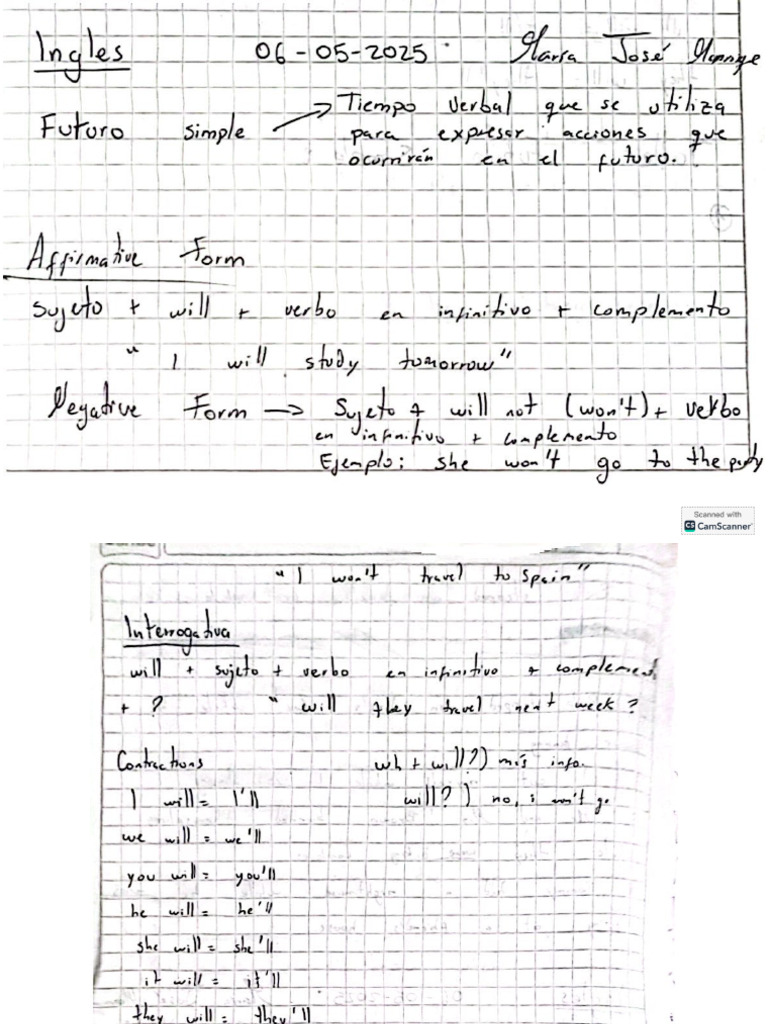 Ingles 06-05-2025 María José
Futuro simple → Tiempo verbal que se utiliza
para expresar acciones que
ocurrirán en el futuro.
Affirmative Form
Sujeto + will + verbo en infinitivo + complemento
" I will study tomorrow"
Negative Form → Sujeto + will not (won't) + verbo
en infinitivo + complemento
Ejemplo: she won't go to the party
Scanned with
CS CamScanner
" I won't travel to Spain"
Interrogativa
will + sujeto + verbo en infinitivo + complement
+ ? " will they travel next week?
Contractions wh + will?) más info.
I will = I'll will? ) no, i won't go
we will = we'll
you will = you'll
he will = he'll
she will = she'll
it will = it'll
they will = they'll